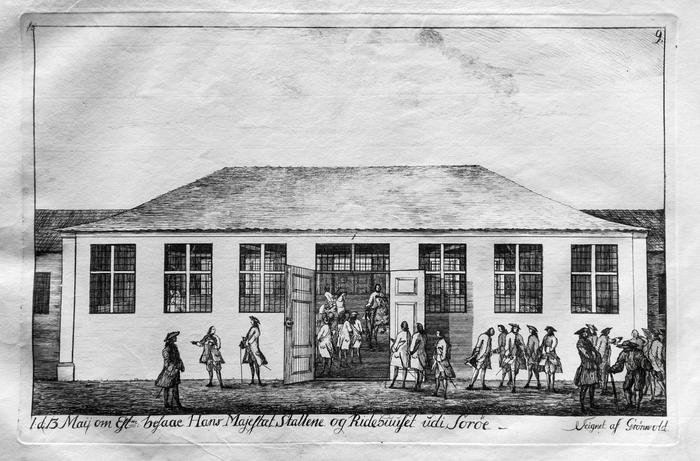 9.
1
d. 13 Maij om Eftm. besaae Hans Majestæt Stallene og Ridehuuset udi Soröe
Teignet af Grönvold